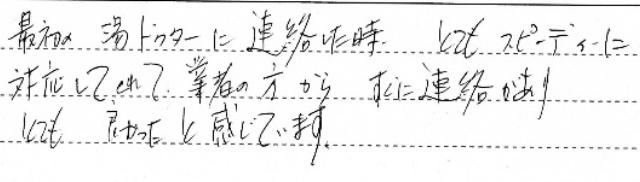 最初の 湯ドクターに 連絡した時 とても スピーディーに
対応してくれて 業者の方から すぐに連絡があり
とても 良かったと感じています。